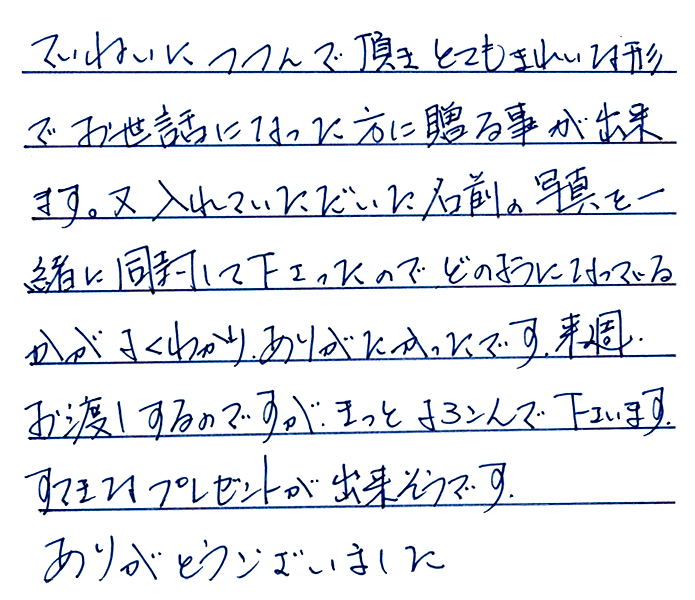 ていねいにつつんで頂きとてもきれいな形
でお世話になった方に贈る事が出来
ます。又入れていただいた名前の写真を一
緒に同封して下さったのでどのようになっている
かがよくわかり、ありがたかったです。来週、
お渡しするのですが、きっとよろこんで下さいます。
すてきなプレゼントが出来そうです。
ありがとうございました